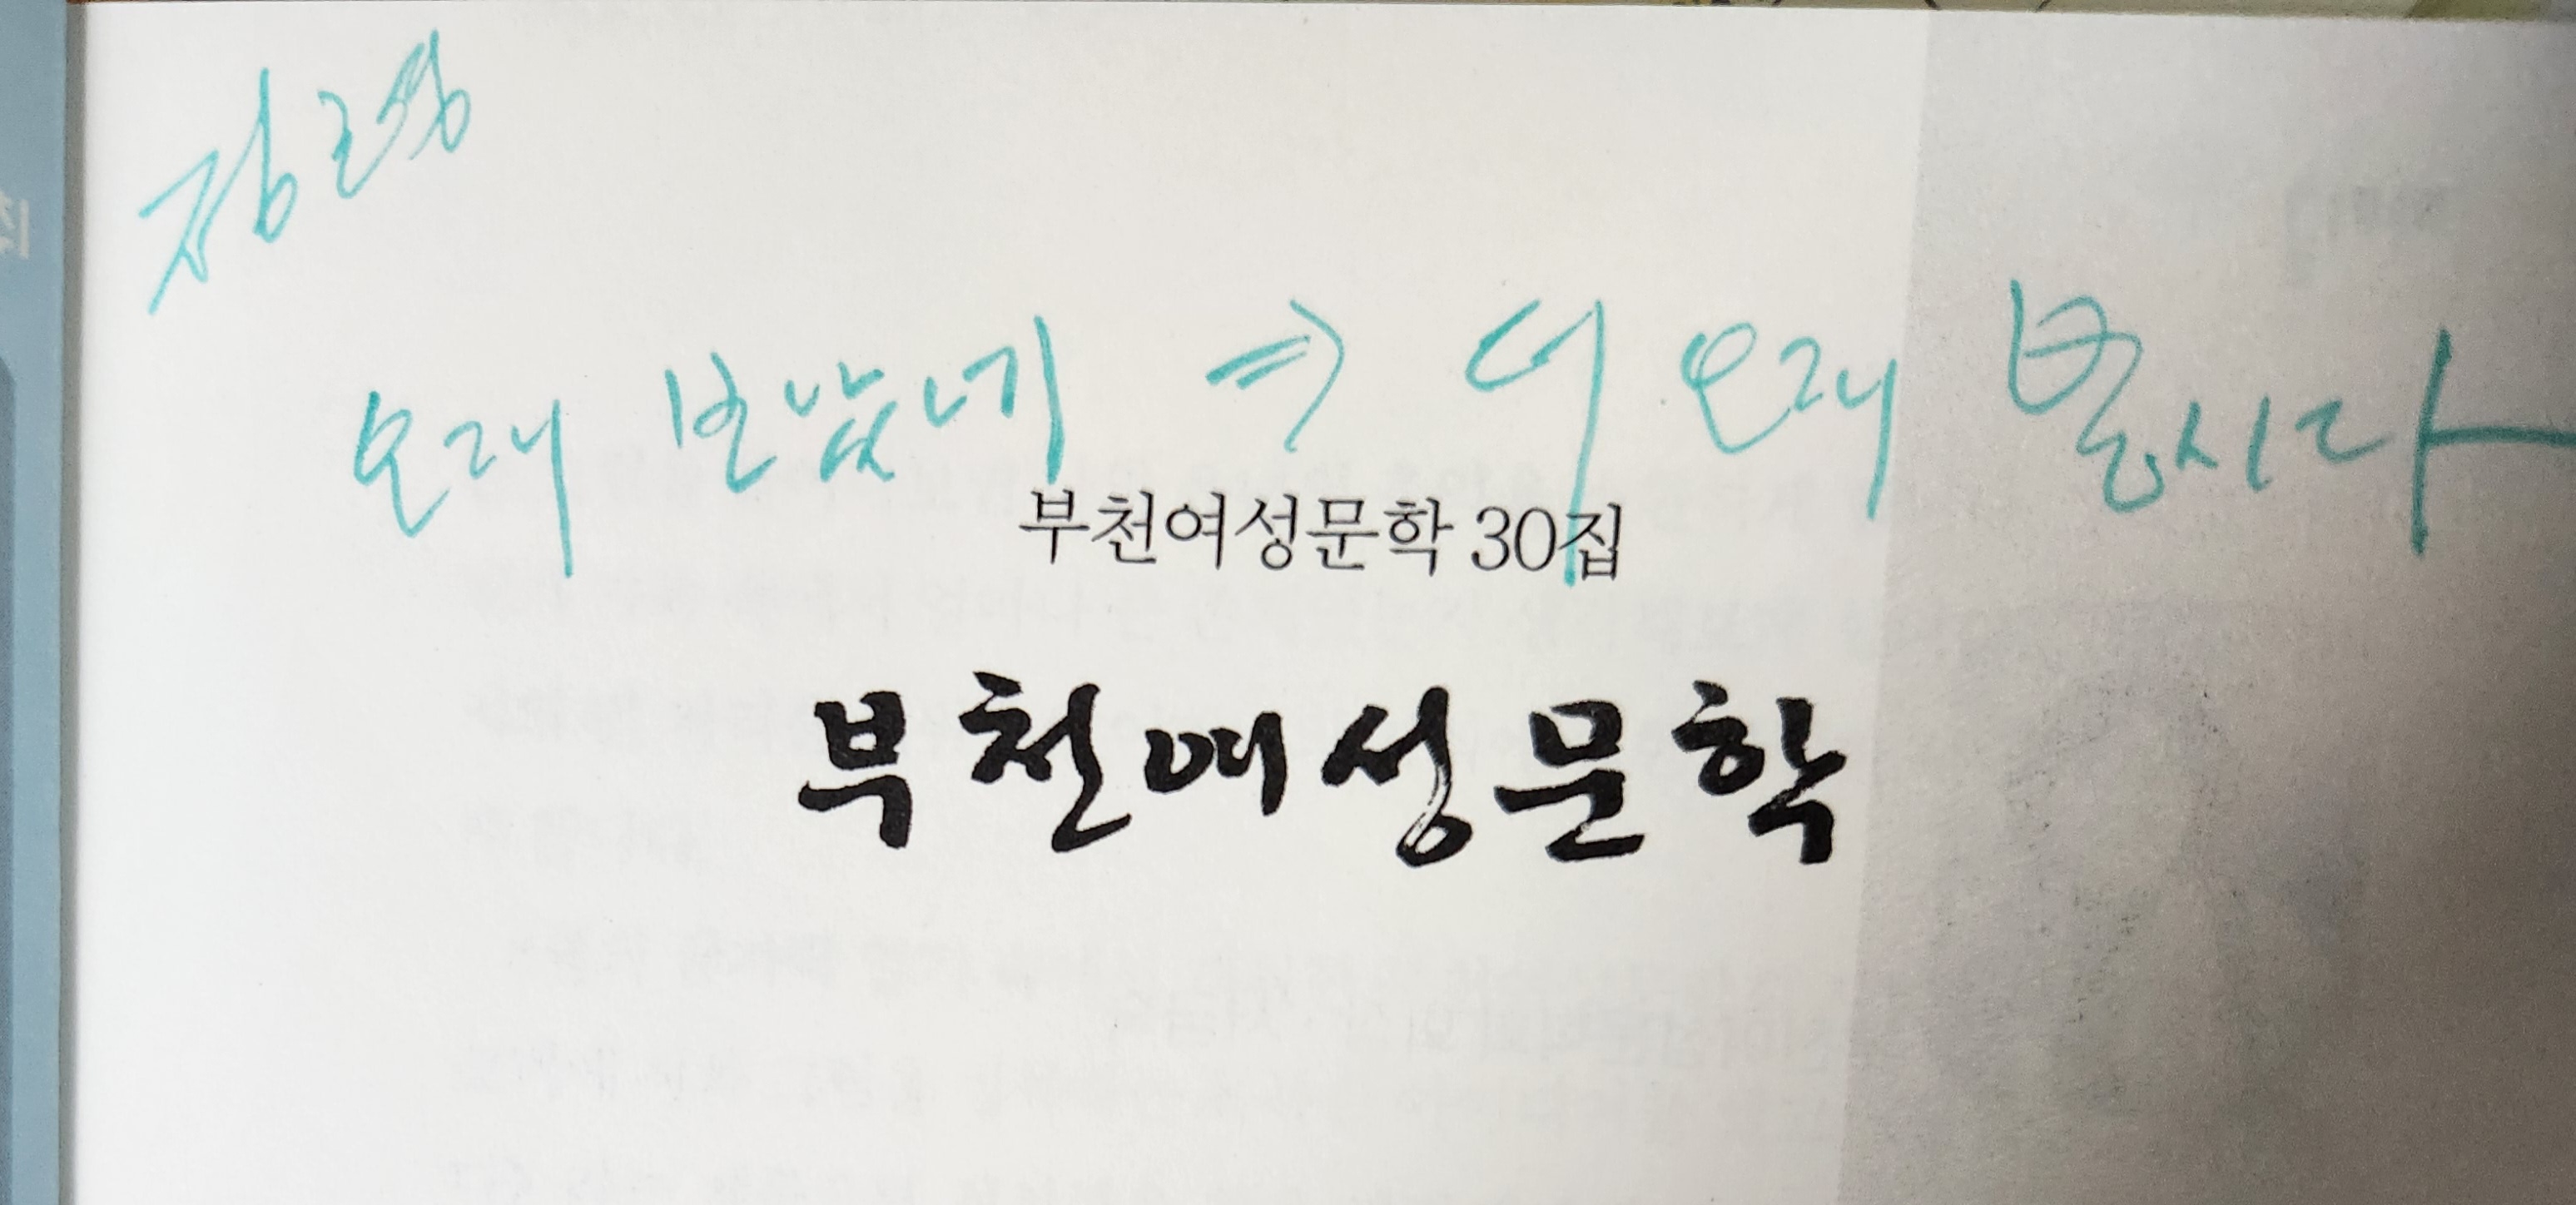 오래 보았네 ⇒ 더 오래 봅시다
부천여성문학 30집
부천여성문학